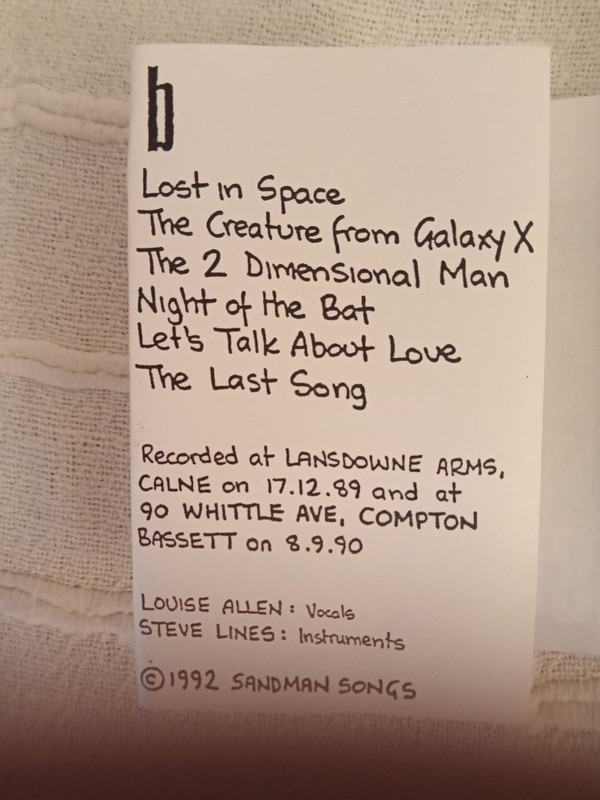 b
Lost in Space
The Creature from Galaxy X
The 2 Dimensional Man
Night of the Bat
Let's Talk About Love
The Last Song
Recorded at LANSDOWNE ARMS,
CALNE on 17.12.89 and at
90 WHITTLE AVE, COMPTON
BASSETT on 8.9.90
LOUISE ALLEN: Vocals
STEVE LINES: Instruments
©1992 SANDMAN SONGS